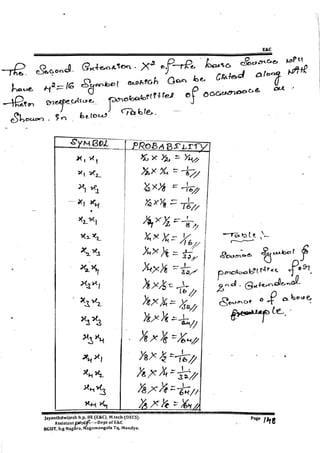 E&C
The Second Extension X² of the basic source will
have 4² = 16 Symbol which Can be listed along with
their respective probabilities of occurrence are
Shown in below Table.
SYMBOL PROBABILITY
x₁ x₁ ½ × ½ = ¼//
x₁ x₂ ½ × ¼ = 1/8//
x₁ x₃ ½ × ⅛ = 1/16//
x₁ x₄ ½ × ⅛ = 1/16//
x₂ x₁ ¼ × ½ = 1/8//
x₂ x₂ ¼ × ¼ = 1/16//
x₂ x₃ ¼ × ⅛ = 1/32//
x₂ x₄ ¼ × ⅛ = 1/32//
x₃ x₁ ⅛ × ½ = 1/16//
x₃ x₂ ⅛ × ¼ = 1/32//
x₃ x₃ ⅛ × ⅛ = 1/64//
x₃ x₄ ⅛ × ⅛ = 1/64//
x₄ x₁ ⅛ × ½ = 1/16//
x₄ x₂ ⅛ × ¼ = 1/32//
x₄ x₃ ⅛ × ⅛ = 1/64//
x₄ x₄ ⅛ × ⅛ = 1/64//
Table :-
Source Symbol &
probabilities for
2nd. Extended
Source of above
Jayanthdwijesh h.p. BE (E&C), M.tech (DECS).
Assistant prof – Dept of E&C
BGSIT, b.g Nagara, Nagamangala Tq, Mandya.
Page 148